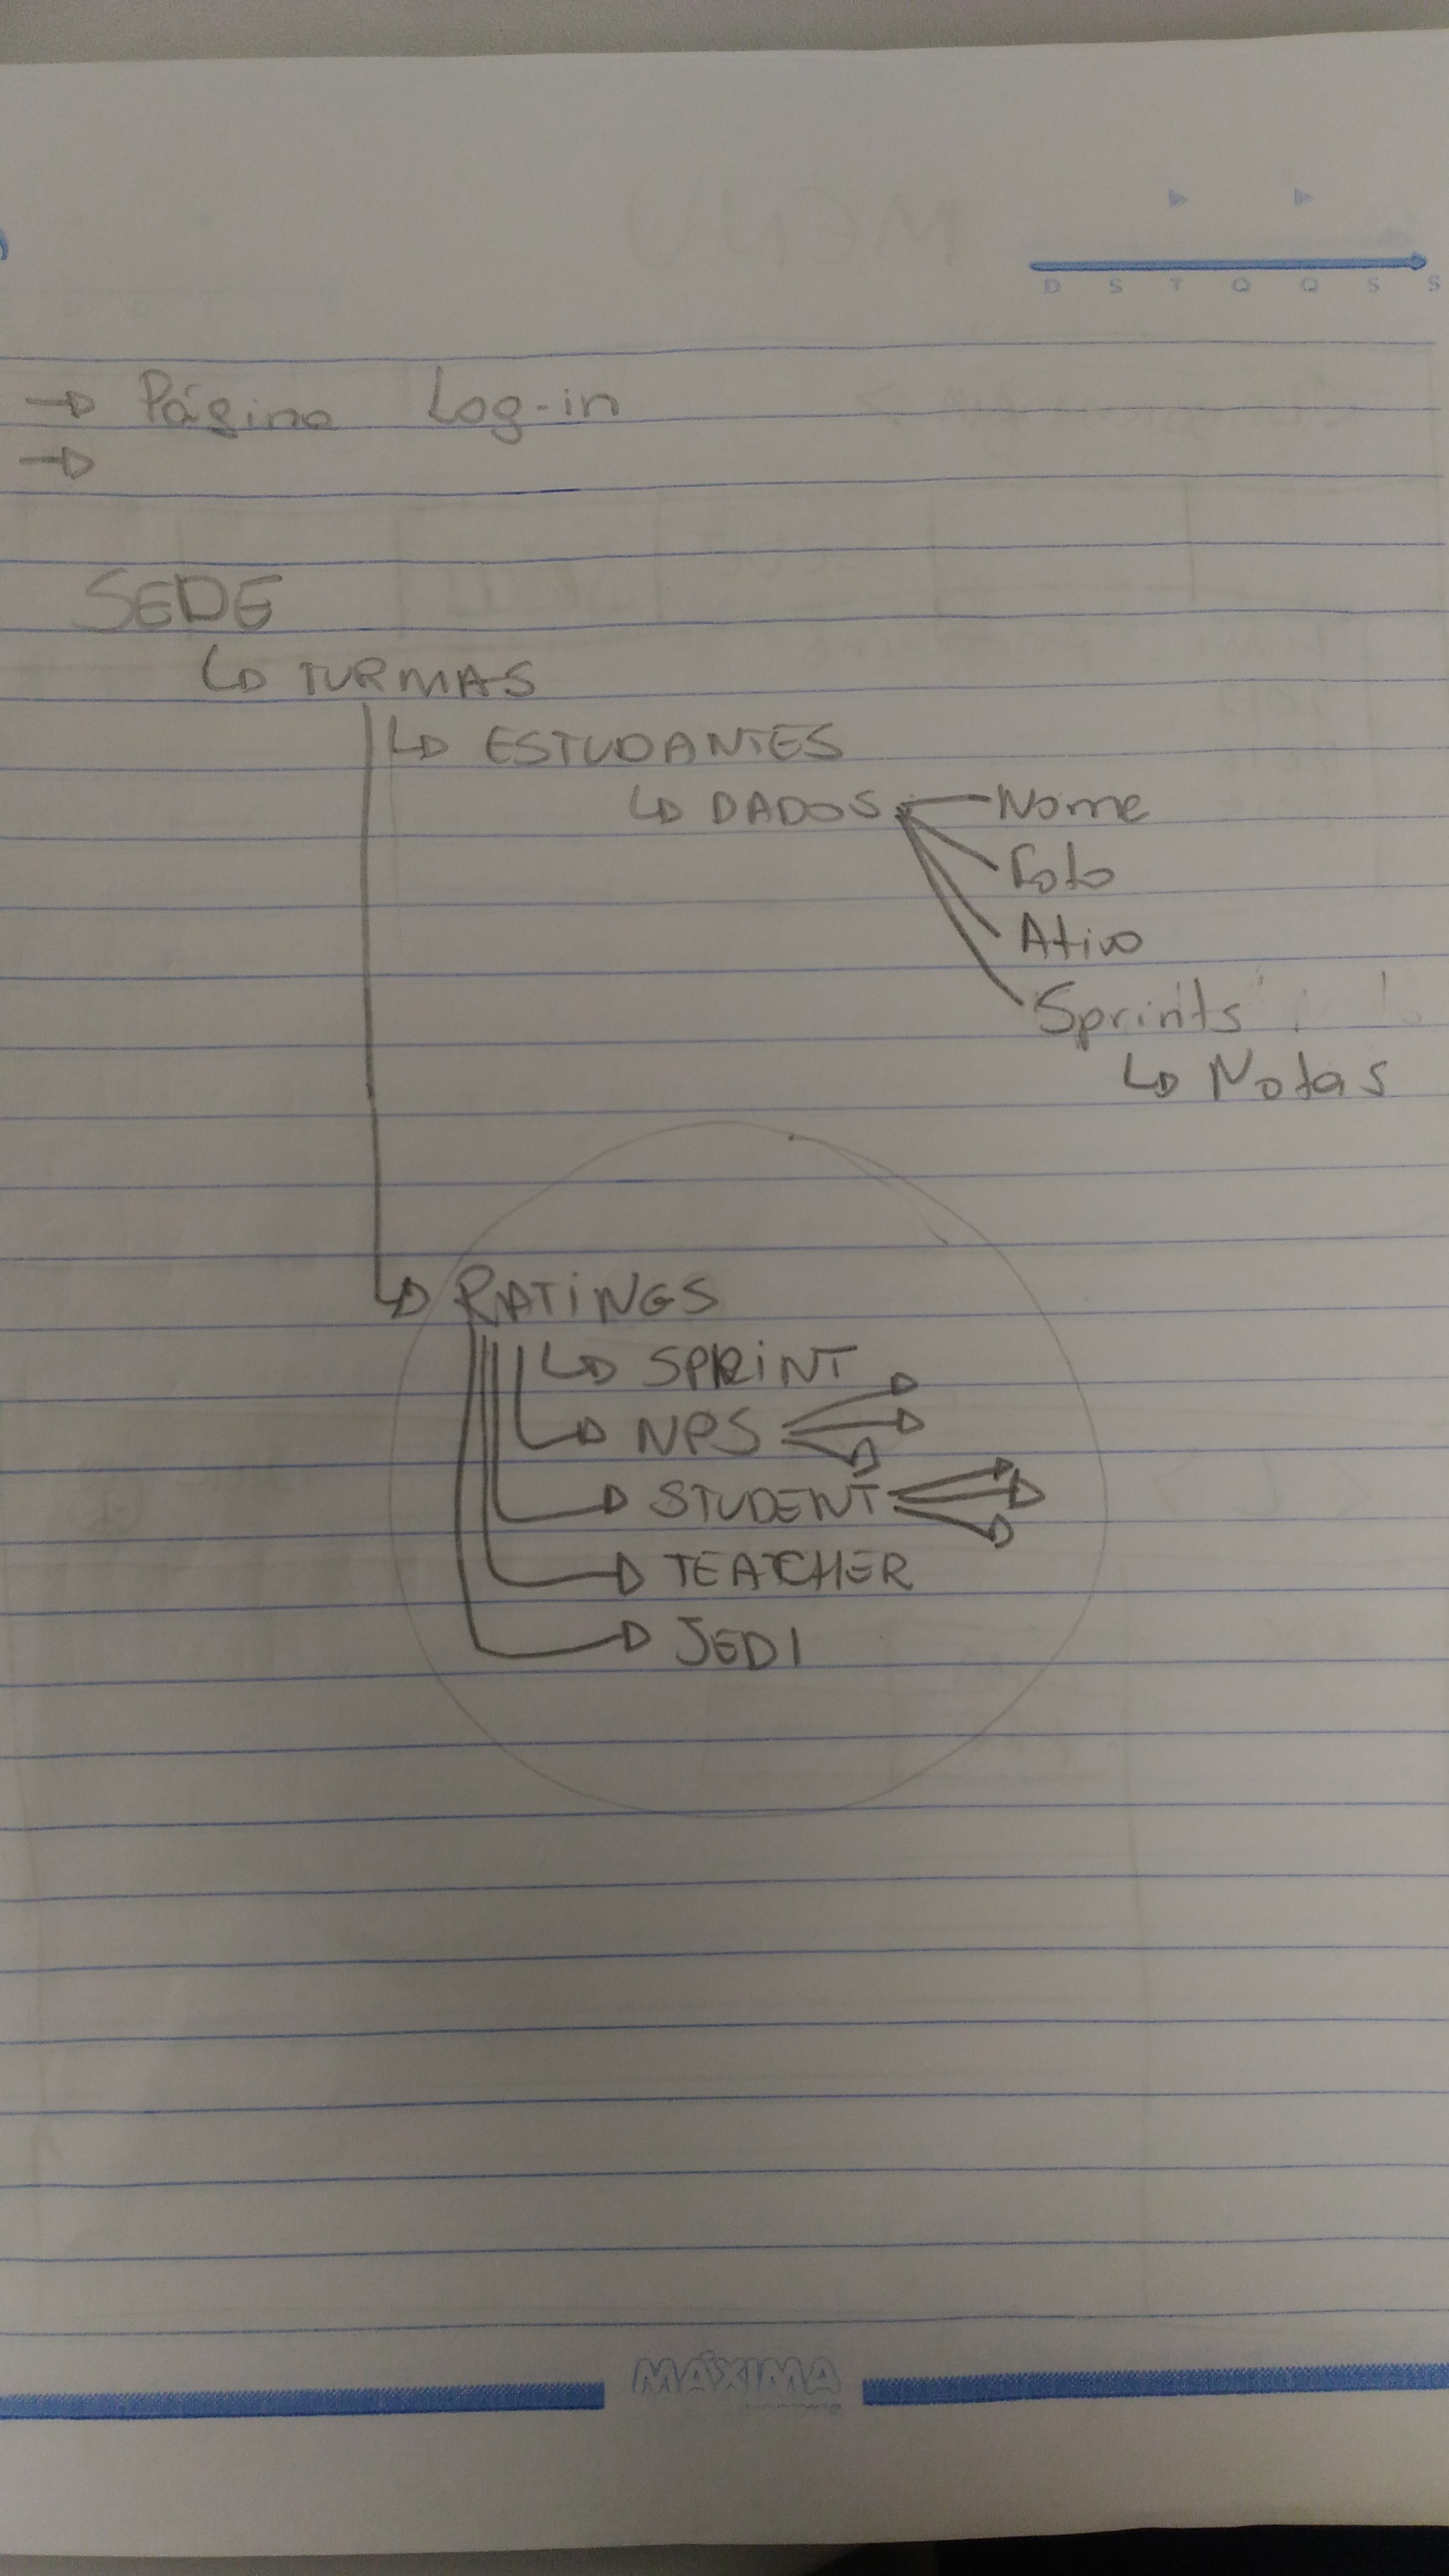 D S T Q Q S S
→ Página Log-in
→
SEDE
↳ TURMAS
↳ ESTUDANTES
↳ DADOS Nome
Foto
Ativo
Sprints
↳ Notas
↳ RATINGS
↳ SPRINT
→ NPS
→ STUDENT
→ TEATCHER
→ JEDI
MÁXIMA